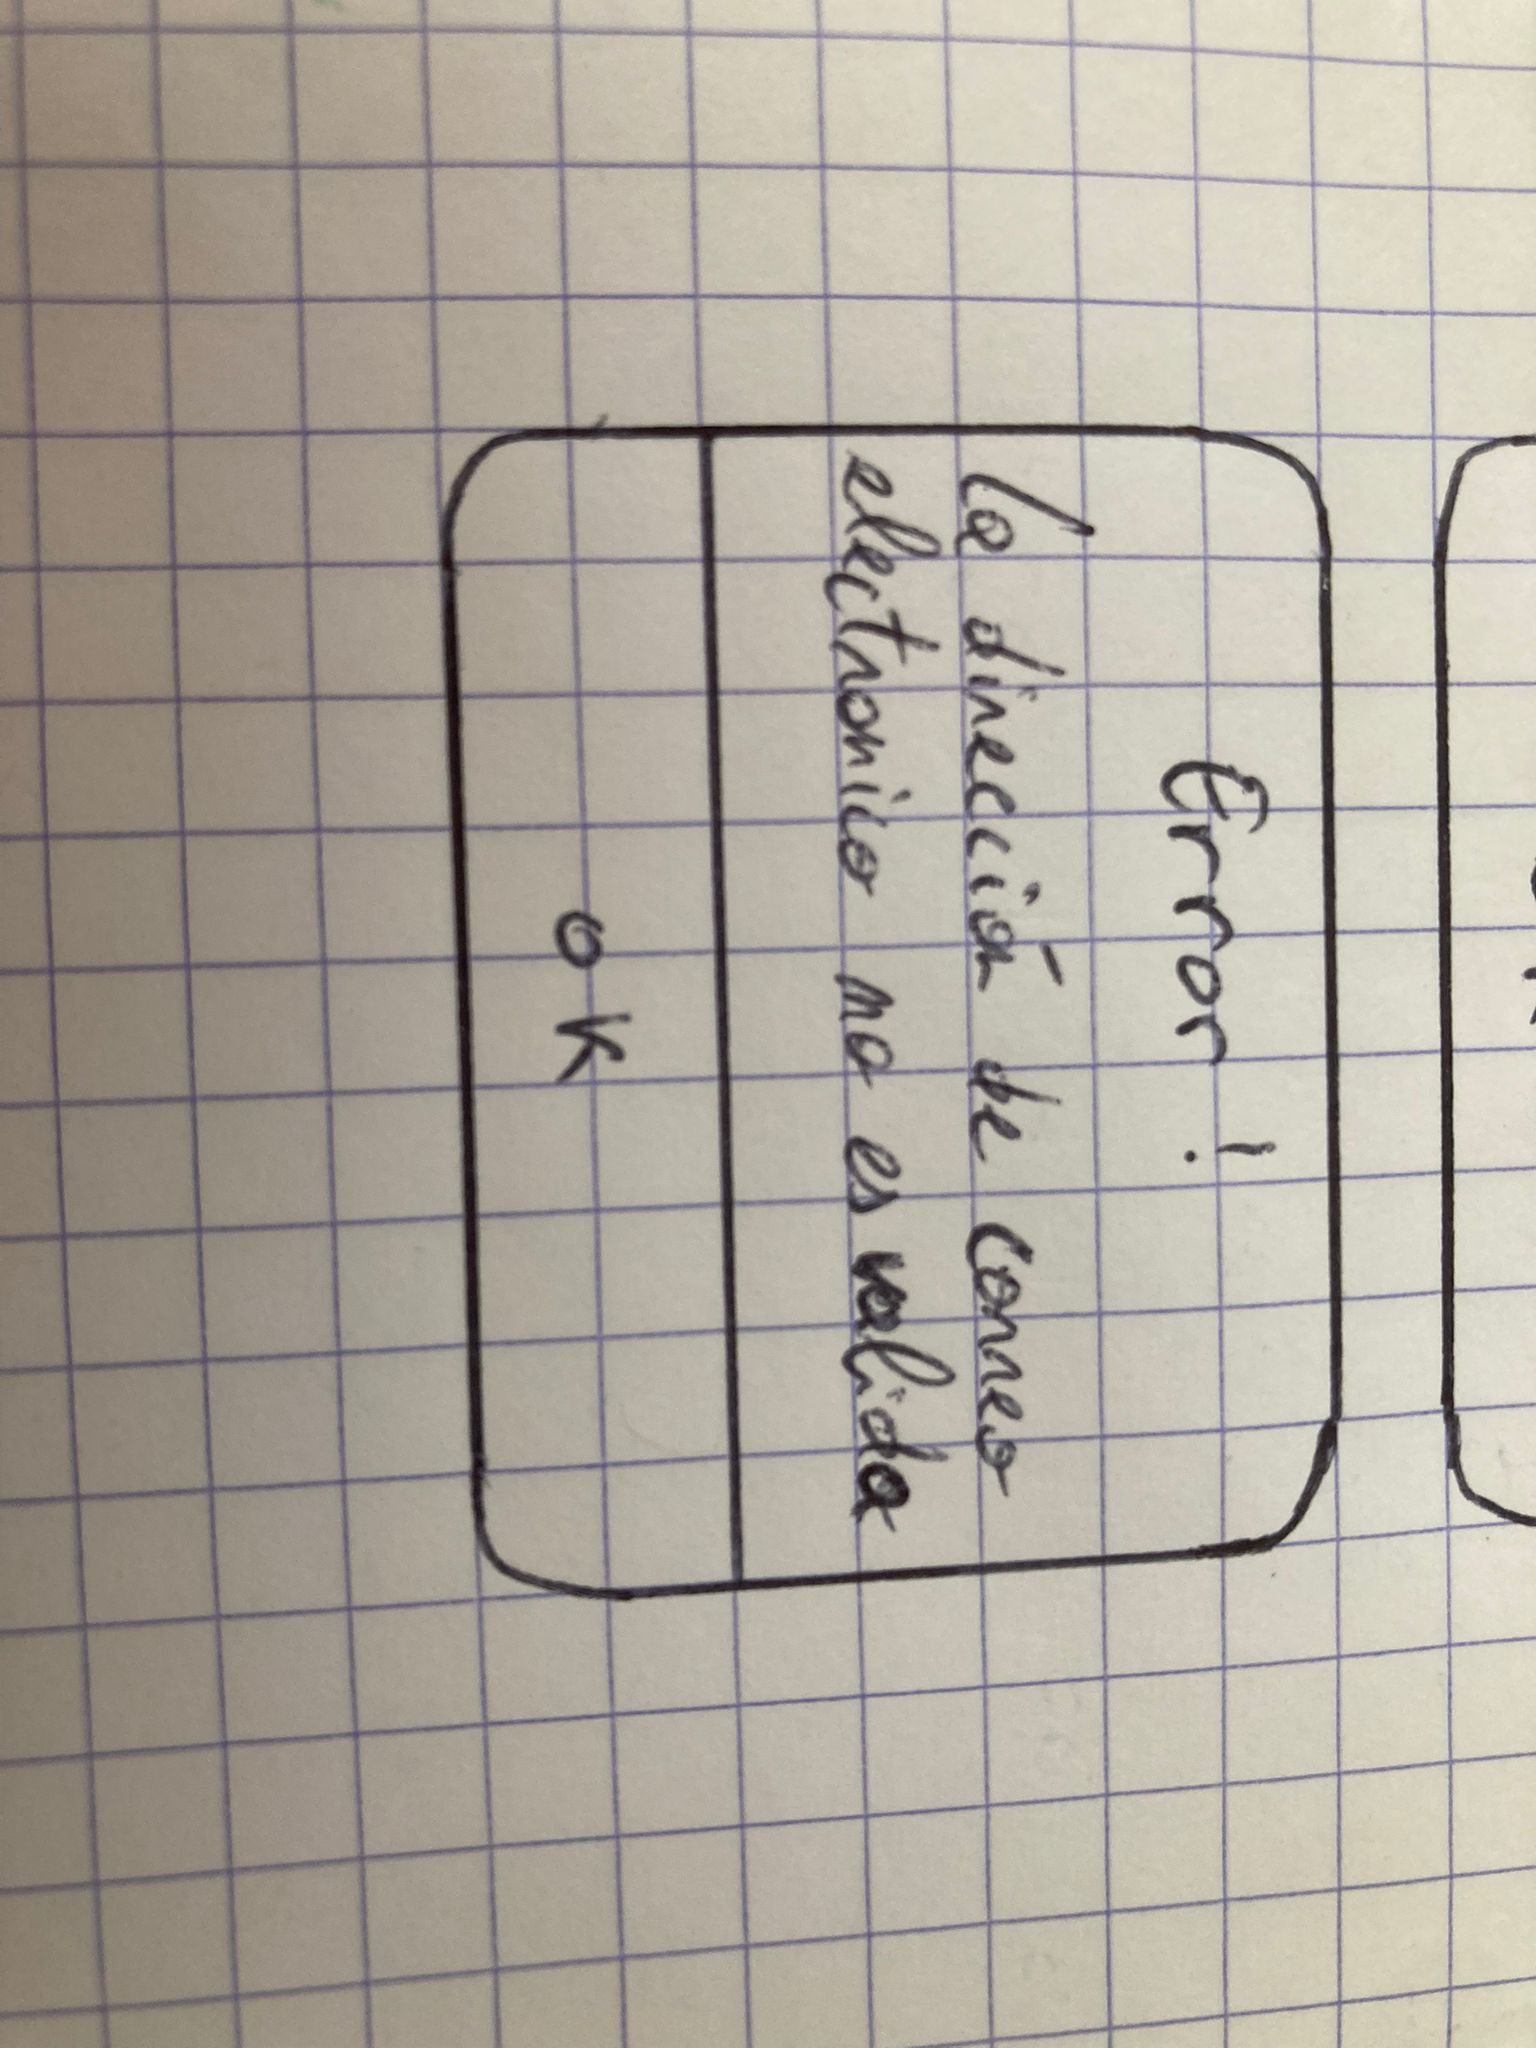 Error !
La dirección de correo
electronico no es valida
OK